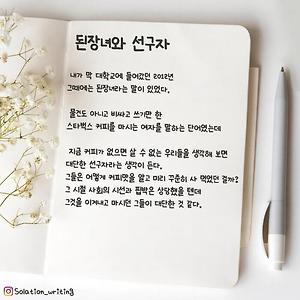 된장녀와 선구자
내가 막 대학교에 들어갔던 2012년
그때에는 된장녀라는 말이 있었다.
물건도 아니고 비싸고 쓰기만 한
스타벅스 커피를 마시는 여자를 말하는 단어였는데
지금 커피가 없으면 살 수 없는 우리들을 생각해 보면
대단한 선구자라는 생각이 든다.
그들은 어떻게 커피맛을 알고 미리 꾸준히 사 먹었던 걸까?
그 시절 사회의 시선과 핍박은 상당했을 텐데
그것을 이겨내고 마시던 그들이 대단한 것 같다.
@Solation_writing